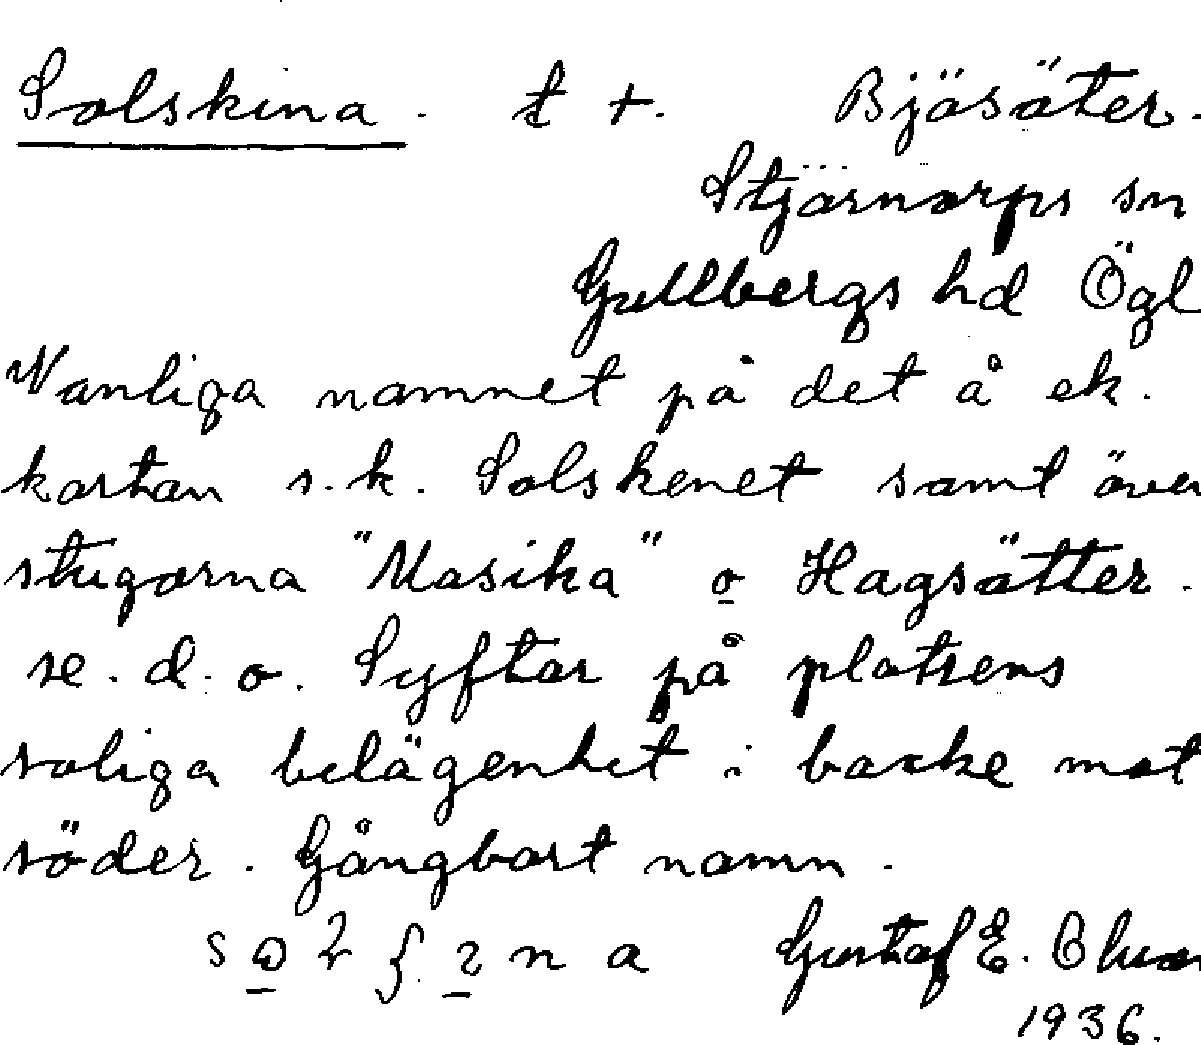 Solskina. t +. Bjäsäter.
Stjärnorps sn
Gullbergs hd Ögl
Vanliga namnet på det å ek.
kartan s.k. Solskenet samt över
stugorna "Masika" o Hagsätter.
se. d. o. Syftar på platsens
soliga belägenhet i backe mot
söder. Gångbart namn.
Gustaf E.
1936.